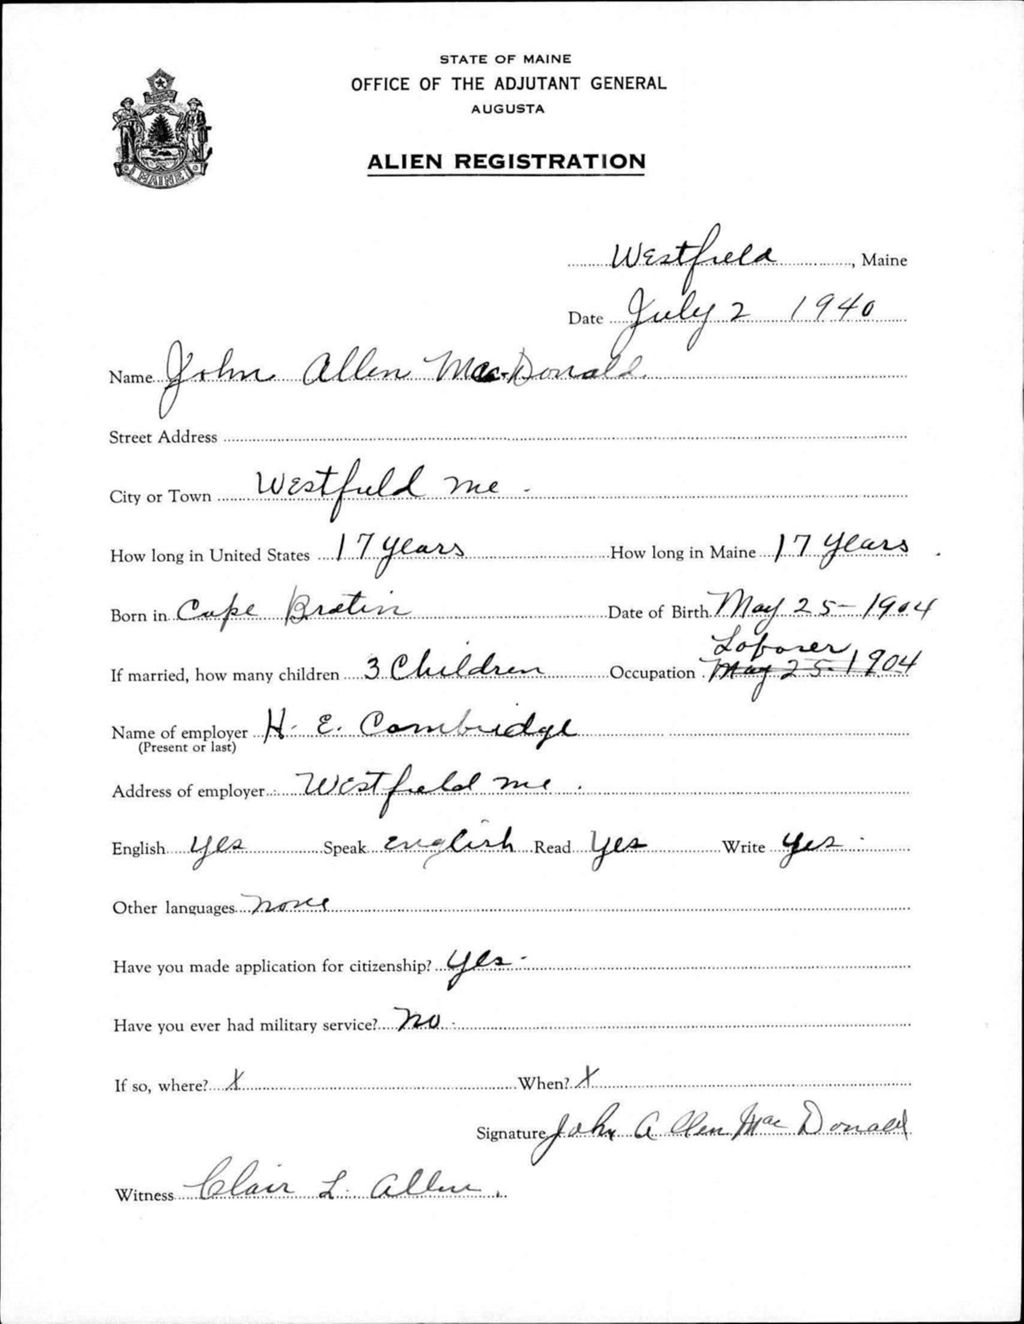 STATE OF MAINE
OFFICE OF THE ADJUTANT GENERAL
AUGUSTA
ALIEN REGISTRATION
MAINE
Westfield, Maine
Date July 2 1940
Name John Allen MacDonald
Street Address
City or Town Westfield Me.
How long in United States 17 years How long in Maine 17 years.
Born in Cape Bretin Date of Birth May 25 - 1904
Laborer
If married, how many children 3 Children Occupation May 25 - 1904
Name of employer H. E. Cambridge
(Present or last)
Address of employer Westfield Me.
English yes Speak English Read Yes Write yes.
Other languages none
Have you made application for citizenship? yes.
Have you ever had military service? no.
If so, where? X When? X
Signature John Allen MacDonald
Witness Clair L. Allen.